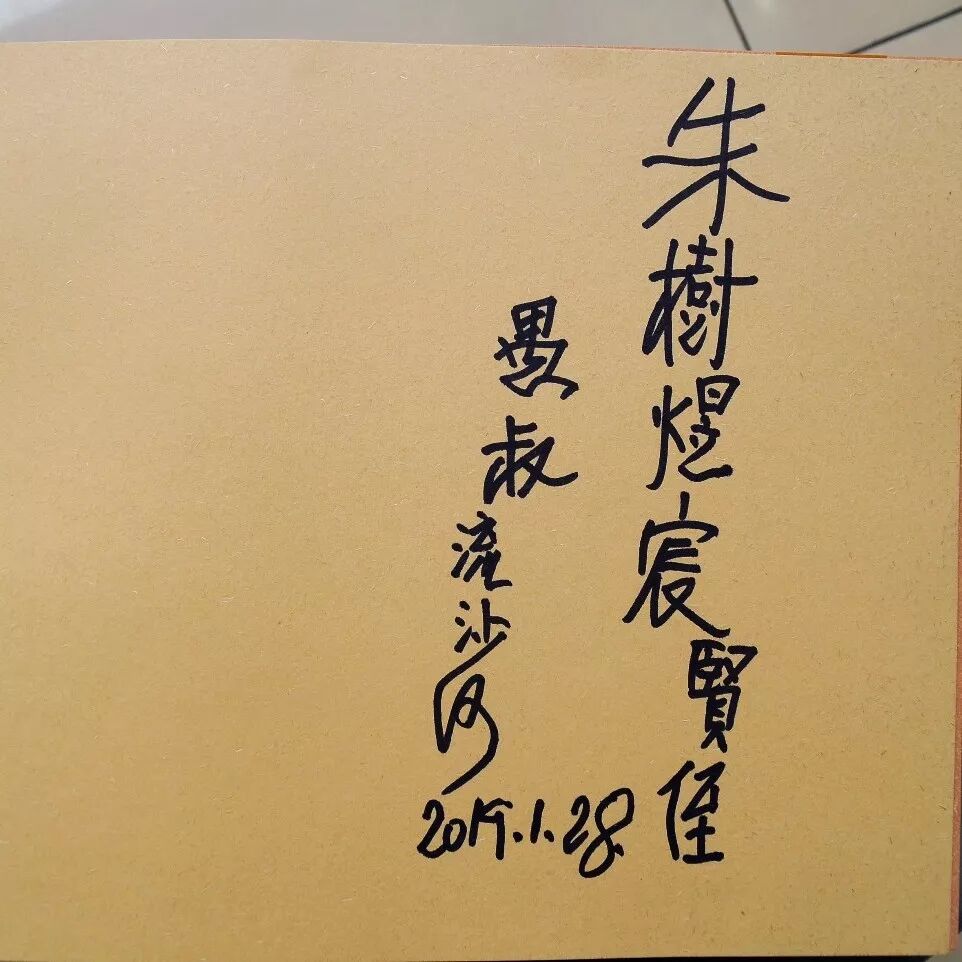 朱樹煜宸賢侄
愚叔流沙河
2019.1.28.